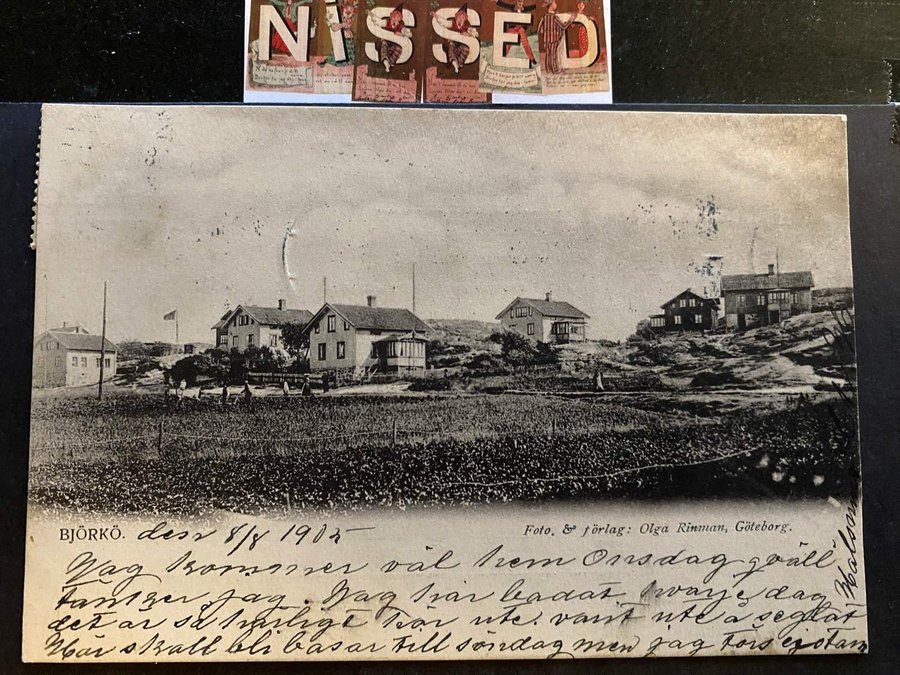 NISSED
BJÖRKÖ. den 8/8 1905
Foto. & förlag: Olga Rinman, Göteborg.
Jag kommer väl hem Onsdag qväll
tänker jag. Jag har badat hvarje dag
det är så härligt här ute. varit ute å seglat
Här skall bli basar till söndag men jag törs ej stan
Hälsan